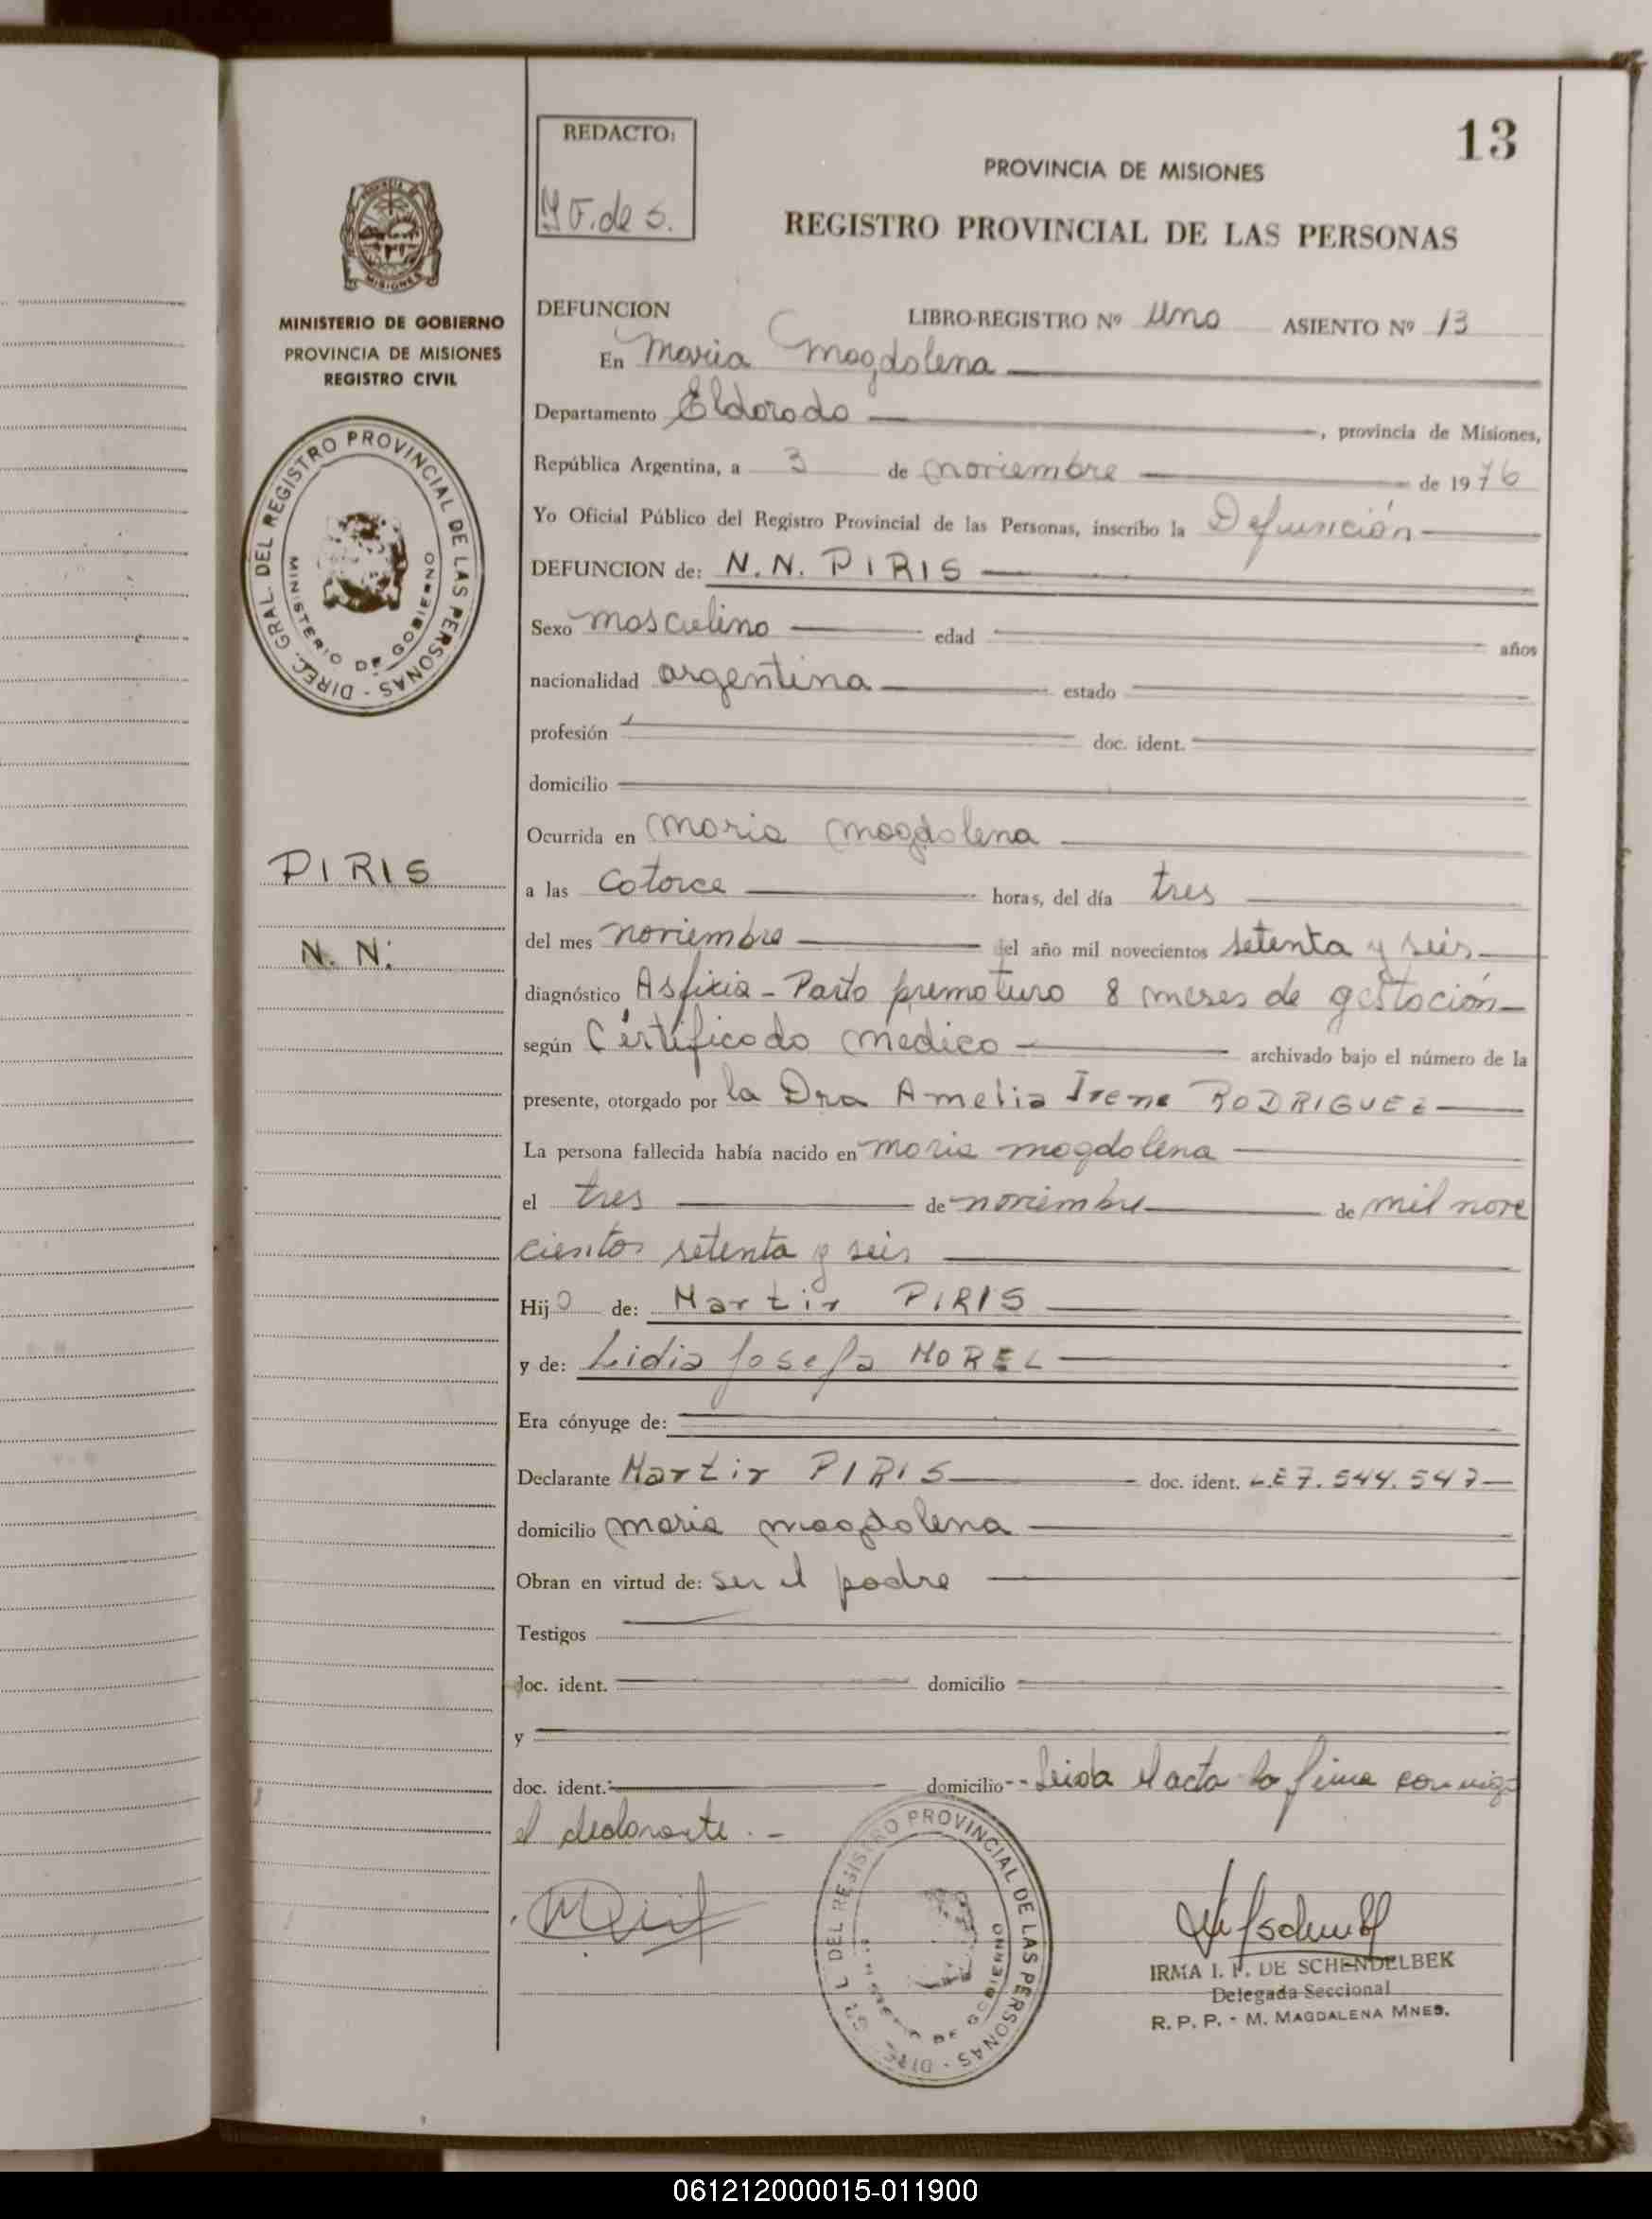 13
REDACTO:
Y F. de S.
PROVINCIA DE MISIONES
REGISTRO PROVINCIAL DE LAS PERSONAS
MISIONES
MINISTERIO DE GOBIERNO
PROVINCIA DE MISIONES
REGISTRO CIVIL
DIREC. GRAL. DEL REGISTRO PROVINCIAL DE LAS PERSONAS -
MINISTERIO DE GOBIERNO
PIRIS
N. N.
DEFUNCION LIBRO-REGISTRO Nº Uno ASIENTO Nº 13
En Maria Magdalena
Departamento Eldorado , provincia de Misiones,
República Argentina, a 3 de noviembre de 1976
Yo Oficial Público del Registro Provincial de las Personas, inscribo la Defunción
DEFUNCION de: N. N. PIRIS
Sexo masculino edad años
nacionalidad argentina estado
profesión doc. ident.
domicilio
Ocurrida en Maria Magdalena
a las catorce horas, del día tres
del mes noviembre del año mil novecientos setenta y seis
diagnóstico Asfixia - Parto prematuro 8 meses de gestación
según Certificado medico archivado bajo el número de la
presente, otorgado por la Dra Amelia Irene RODRIGUEZ
La persona fallecida había nacido en Maria Magdalena
el tres de noviembre de mil nove
cientos setenta y seis
Hijo de: Martir PIRIS
y de: Lidia Josefa MOREL
Era cónyuge de:
Declarante Martir PIRIS doc. ident. L.E 7.544.547
domicilio Maria Magdalena
Obran en virtud de: ser el padre
Testigos
doc. ident. domicilio
y
doc. ident.: domicilio -- Leida el acta la firma conmigo
el declarante. -
DEL REGISTRO PROVINCIAL DE LAS PERSONAS -
IRMA I. F. DE SCHENDELBEK
Delegada Seccional
R. P. P. - M. MAGDALENA MNES.
061212000015-011900